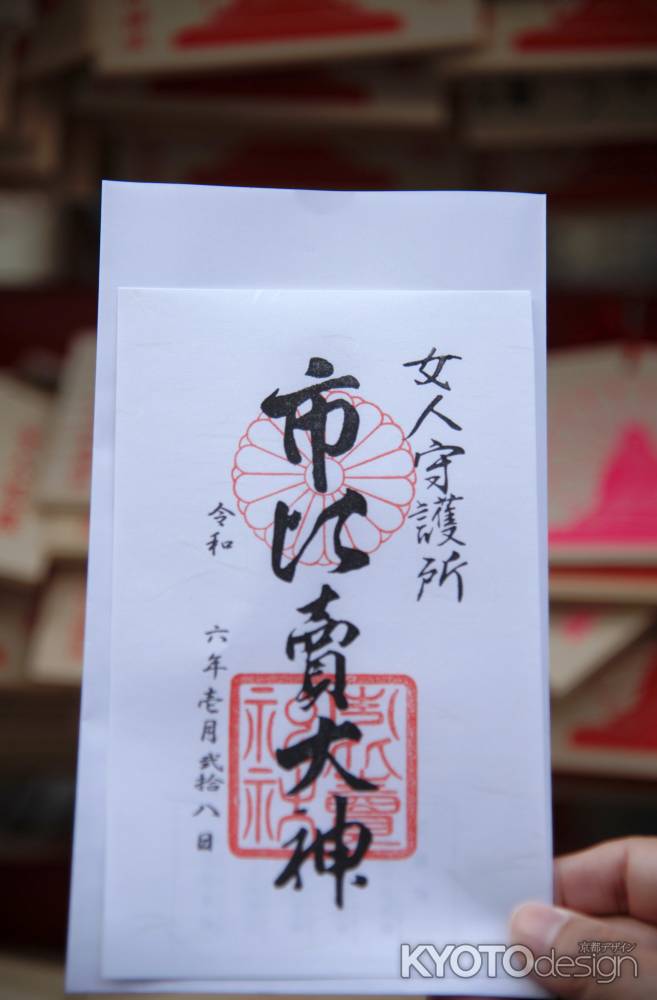 女人守護所
市比賣大神
令和 六年壱月弐拾八日
京都デザイン
KYOTOdesign